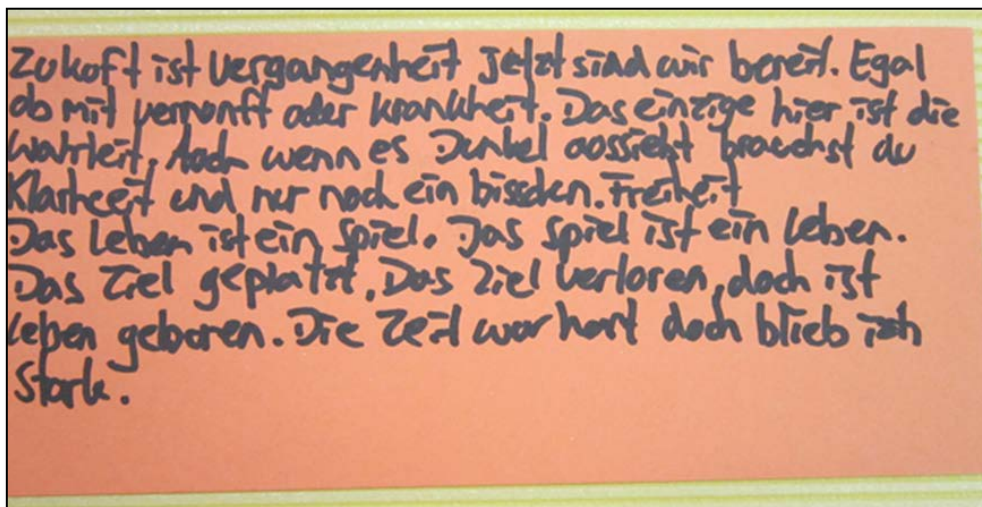 Zukoft ist Vergangenheit Jetzt sind wir bereit. Egal
ob mit vernunft oder krankheit. Das einzige hier ist die
Wahrheit. Auch wenn es Dunkel aussieht brauchst du
Klarheit und nur noch ein bisschen. Freiheit
Das Leben ist ein Spiel. Das Spiel ist ein Leben.
Das Ziel geplatzt. Das Ziel verloren, doch ist
Leben geboren. Die Zeit war hart doch blieb ich
Stark.